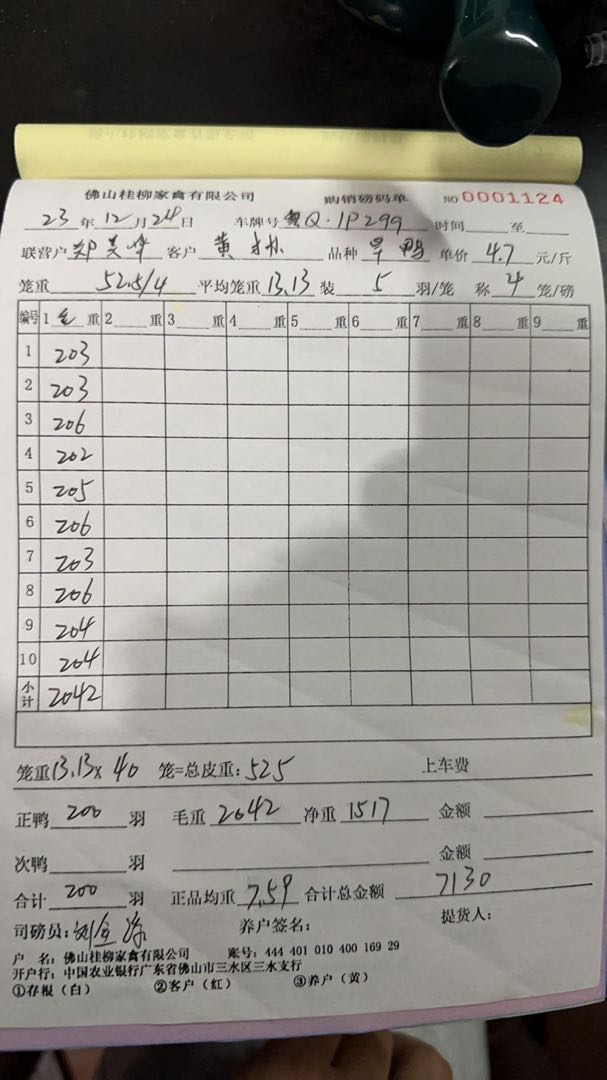 佛山桂柳家禽有限公司 购销磅码单 NO 0001124
23 年 12 月 24 日 车牌号 粤Q·1P299 时间 至
联营户 郑美华 客户 黄 品种 旱鸭 单价 4.7 元/斤
笼重 52.5/4 平均笼重 13.13 装 5 羽/笼 称 4 笼/磅
编号 1 毛 重 2 重 3 重 4 重 5 重 6 重 7 重 8 重 9 重
1 203
2 203
3 206
4 202
5 205
6 206
7 203
8 206
9 204
10 204
小计 2042
笼重 13.13× 40 笼=总皮重: 525 上车费
正鸭 200 羽 毛重 2042 净重 1517 金额
次鸭 羽 金额
合计 200 羽 正品均重 7.59 合计总金额 7130
司磅员: 养户签名: 提货人:
户 名: 佛山桂柳家禽有限公司 账号: 444 401 010 400 169 29
开户行: 中国农业银行广东省佛山市三水区三水支行
①存根（白） ②客户（红） ③养户（黄）